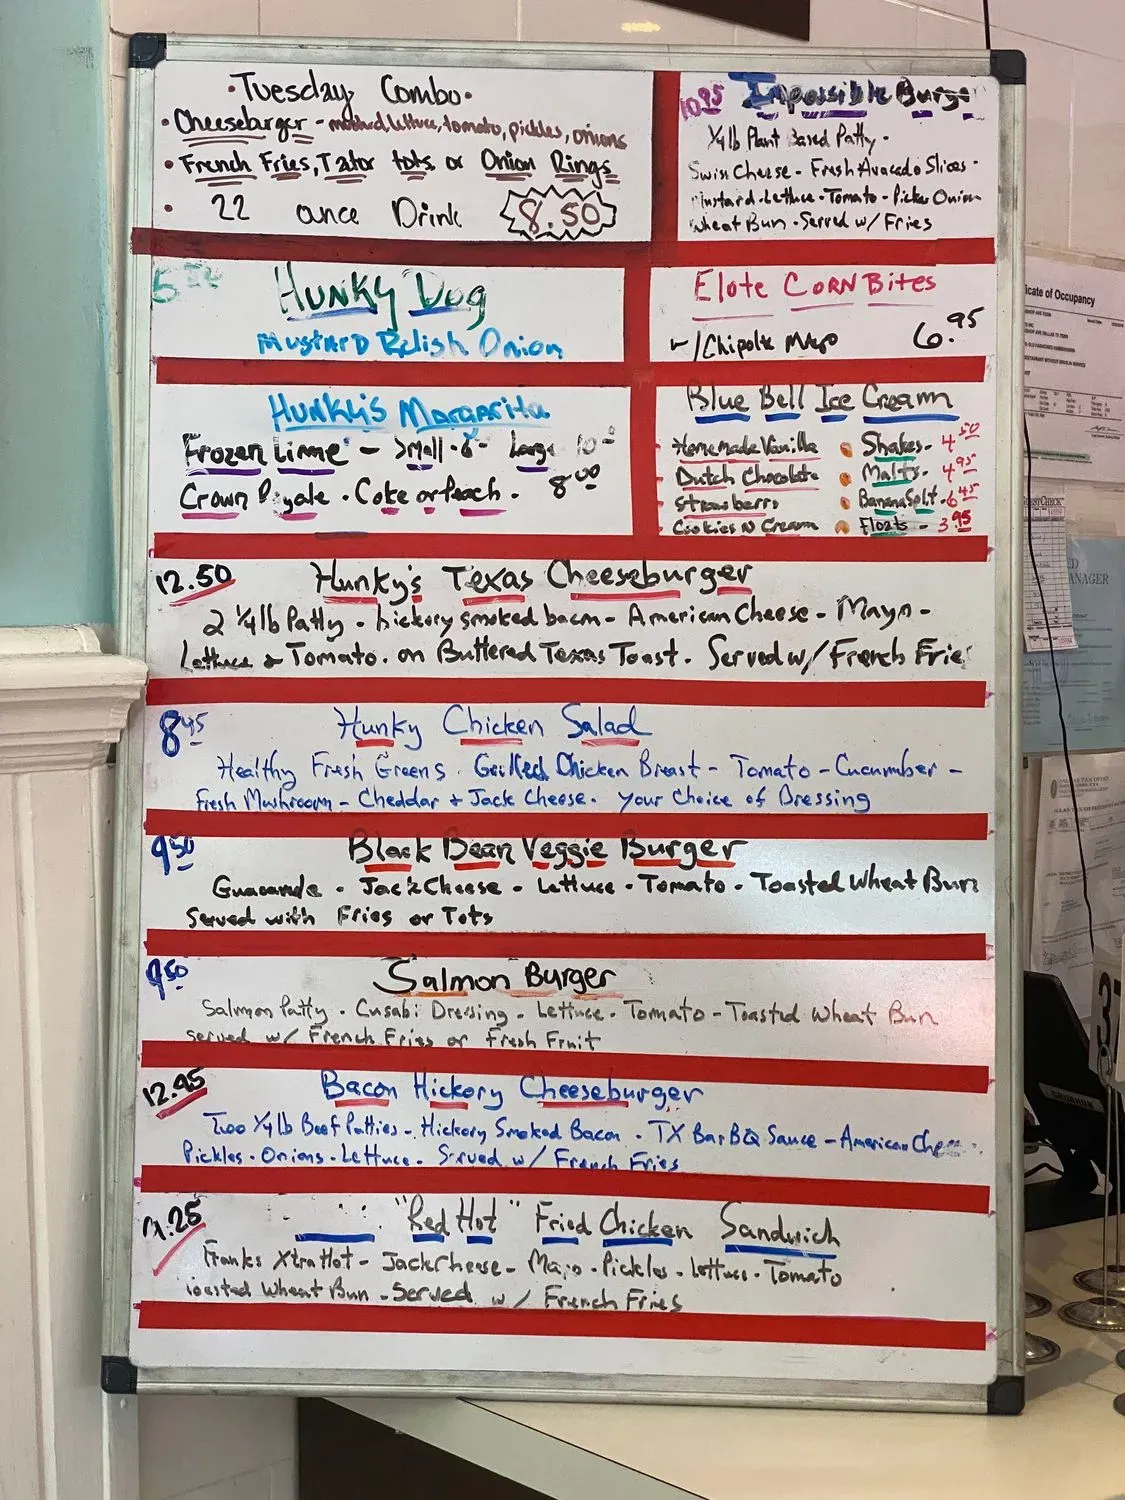 ·Tuesday Combo·
· Cheeseburger - mustard, lettuce, tomato, pickles, onions
· French Fries, Tator tots or Onion Rings
· 22 ounce Drink 8.50
10.95 Impossible Burger
1/4 lb Plant Based Patty -
Swiss Cheese - Fresh Avacado Slices -
Mustard - Lettuce - Tomato - Pickle Onion
Wheat Bun - Served w/ Fries
Hunky Dog
Mustard Relish Onion
Elote Corn Bites
w/ Chipotle Mayo 6.95
Hunky's Margarita
Frozen Lime - Small - 8 - Large 10
Crown Royale · Coke or Peach · 8.00
Blue Bell Ice Cream
Homemade Vanilla
Dutch Chocolate
Strawberry
Cookies N Cream
Shakes - 4.50
Malts - 4.95
Banana Split - 6.45
Floats - 3.95
12.50 Hunky's Texas Cheeseburger
2 1/4 lb Patty - hickory smoked bacon - American Cheese - Mayo -
Lettuce & Tomato. on Buttered Texas Toast. Served w/ French Fries
8.45 Hunky Chicken Salad
Healthy Fresh Greens · Grilled Chicken Breast - Tomato - Cucumber -
Fresh Mushroom - Cheddar & Jack Cheese. Your Choice of Dressing
9.50 Black Bean Veggie Burger
Jack Cheese - Lettuce - Tomato - Toasted Wheat Bun
Served with Fries or Tots
9.50 Salmon Burger
Salmon Patty - Cusabi Dressing - Lettuce - Tomato - Toasted Wheat Bun
served w/ French Fries or Fresh Fruit
12.95 Bacon Hickory Cheeseburger
Two 1/4 lb Beef Patties - Hickory Smoked Bacon - TX Bar BQ Sauce - American
Pickles - Onions - Lettuce - Served w/ French Fries
"Red Hot" Fried Chicken Sandwich
Franks Xtra Hot - Jack Cheese - Mayo - Pickles - Lettuce - Tomato
Toasted Wheat Bun - Served w/ French Fries
icate of Occupancy
ANAGER